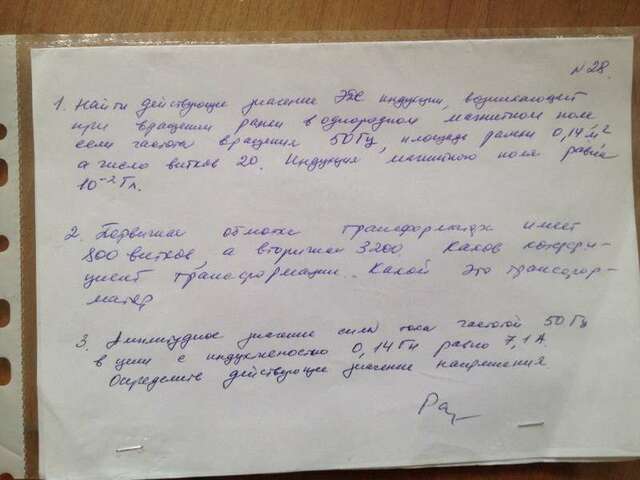 №28.
1. Найти действующее значение ЭДС индукции, возникающей
при вращении рамки в однородном магнитном поле
если частота вращения 50 Гц, площадь рамки 0,14 м²
а число витков 20. Индукция магнитного поля равна
10⁻² Тл.
2. Первичная обмотка трансформатора имеет
800 витков, а вторичная 3200. Каков коэффи-
циент трансформации. Какой это трансфор-
матор
3. Амплитудное значение силы тока частотой 50 Гц
в цепи с индуктивностью 0,14 Гн равно 7,1 А.
Определите действующее значение напряжения.